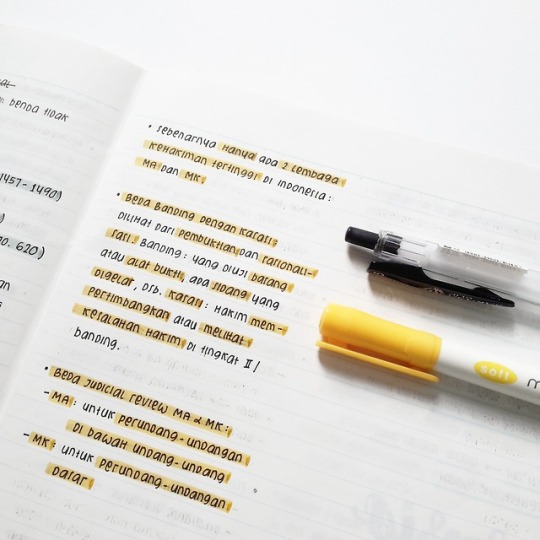 al
n: benda tidak
1457-1490)
)
0. 620)
an
s
• sebenarnya hanya ada 2 lembaga
kehakiman tertinggi di Indonesia:
MA dan MK.
• Beda Banding dengan Kasasi:
dilihat dari pembuktian dan rasionali-
Banding: yang diuji barang
atau alat bukti, ada sidang yang
digelar, dsb. Kasasi: hakim mem-
pertimbangkan atau melihat
kesalahan hakim di tingkat II/
banding.
• Beda Judicial review MA & MK:
- MA: untuk perundang-undangan
di bawah undang-undang
- MK: untuk perundang-undangan
dasar
soft
m